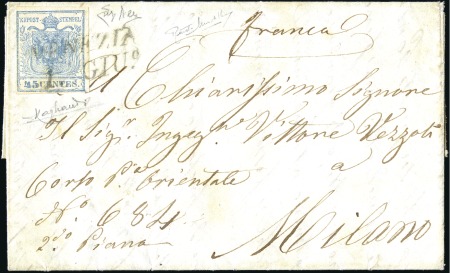 KKPOST-STEMPEL
45 CENTES.
VENEZIA
GIU.º
franca
Al Chiarissimo Signore
Il Sigr. Ingegr. Vittore Vezzoli
a
Corso Pta. Orientale
No. 684
2do. Piano
Milano